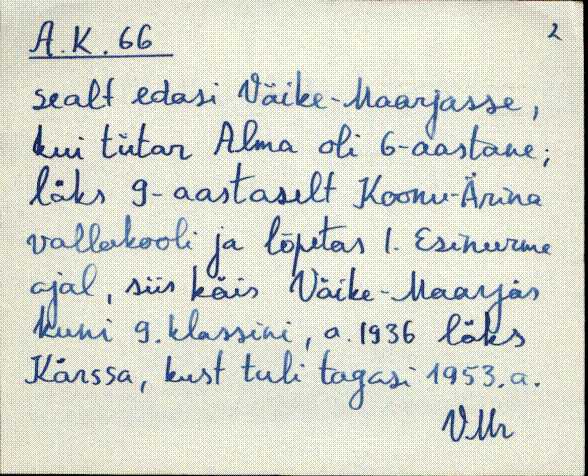 A.K. 66
2
sealt edasi Väike-Maarjasse,
kui tütar Alma oli 6-aastane;
läks 9-aastaselt Koonu-Ärina
vallakooli ja lõpetas I. Esinurme
ajal, siis käis Väike-Maarjas
kuni 9. klassini, a. 1936 läks
Kärssa, kust tuli tagasi 1953. a.